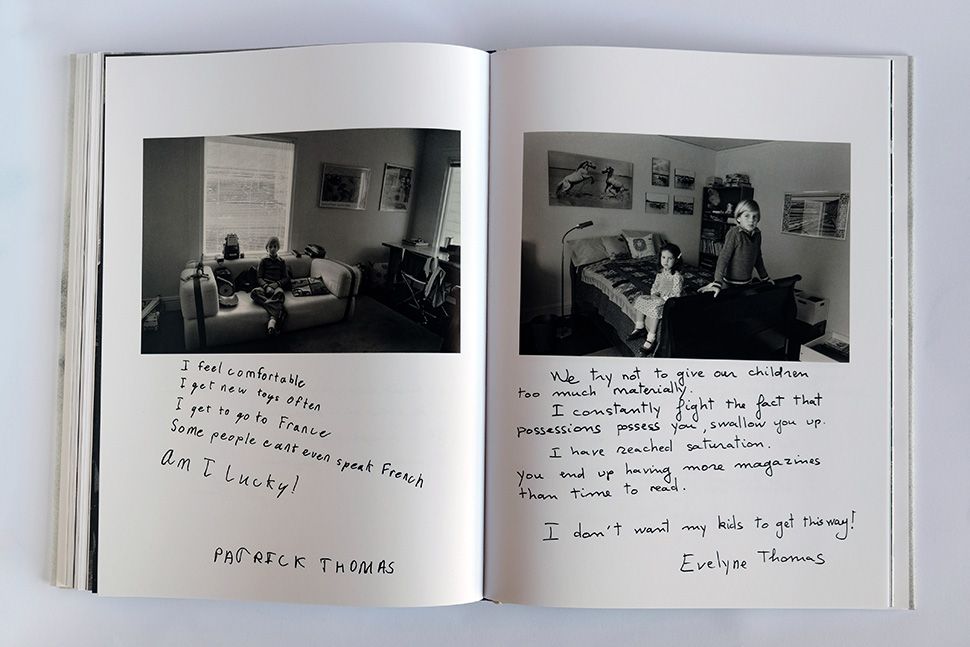 I feel comfortable
I get new toys often
I get to go to France
Some people cant even speak French
Am I Lucky!
PATRICK THOMAS
We try not to give our children
too much materially.
I constantly fight the fact that
possessions possess you, swallow you up.
I have reached saturation.
You end up having more magazines
than time to read.
I don't want my kids to get this way!
Evelyne Thomas